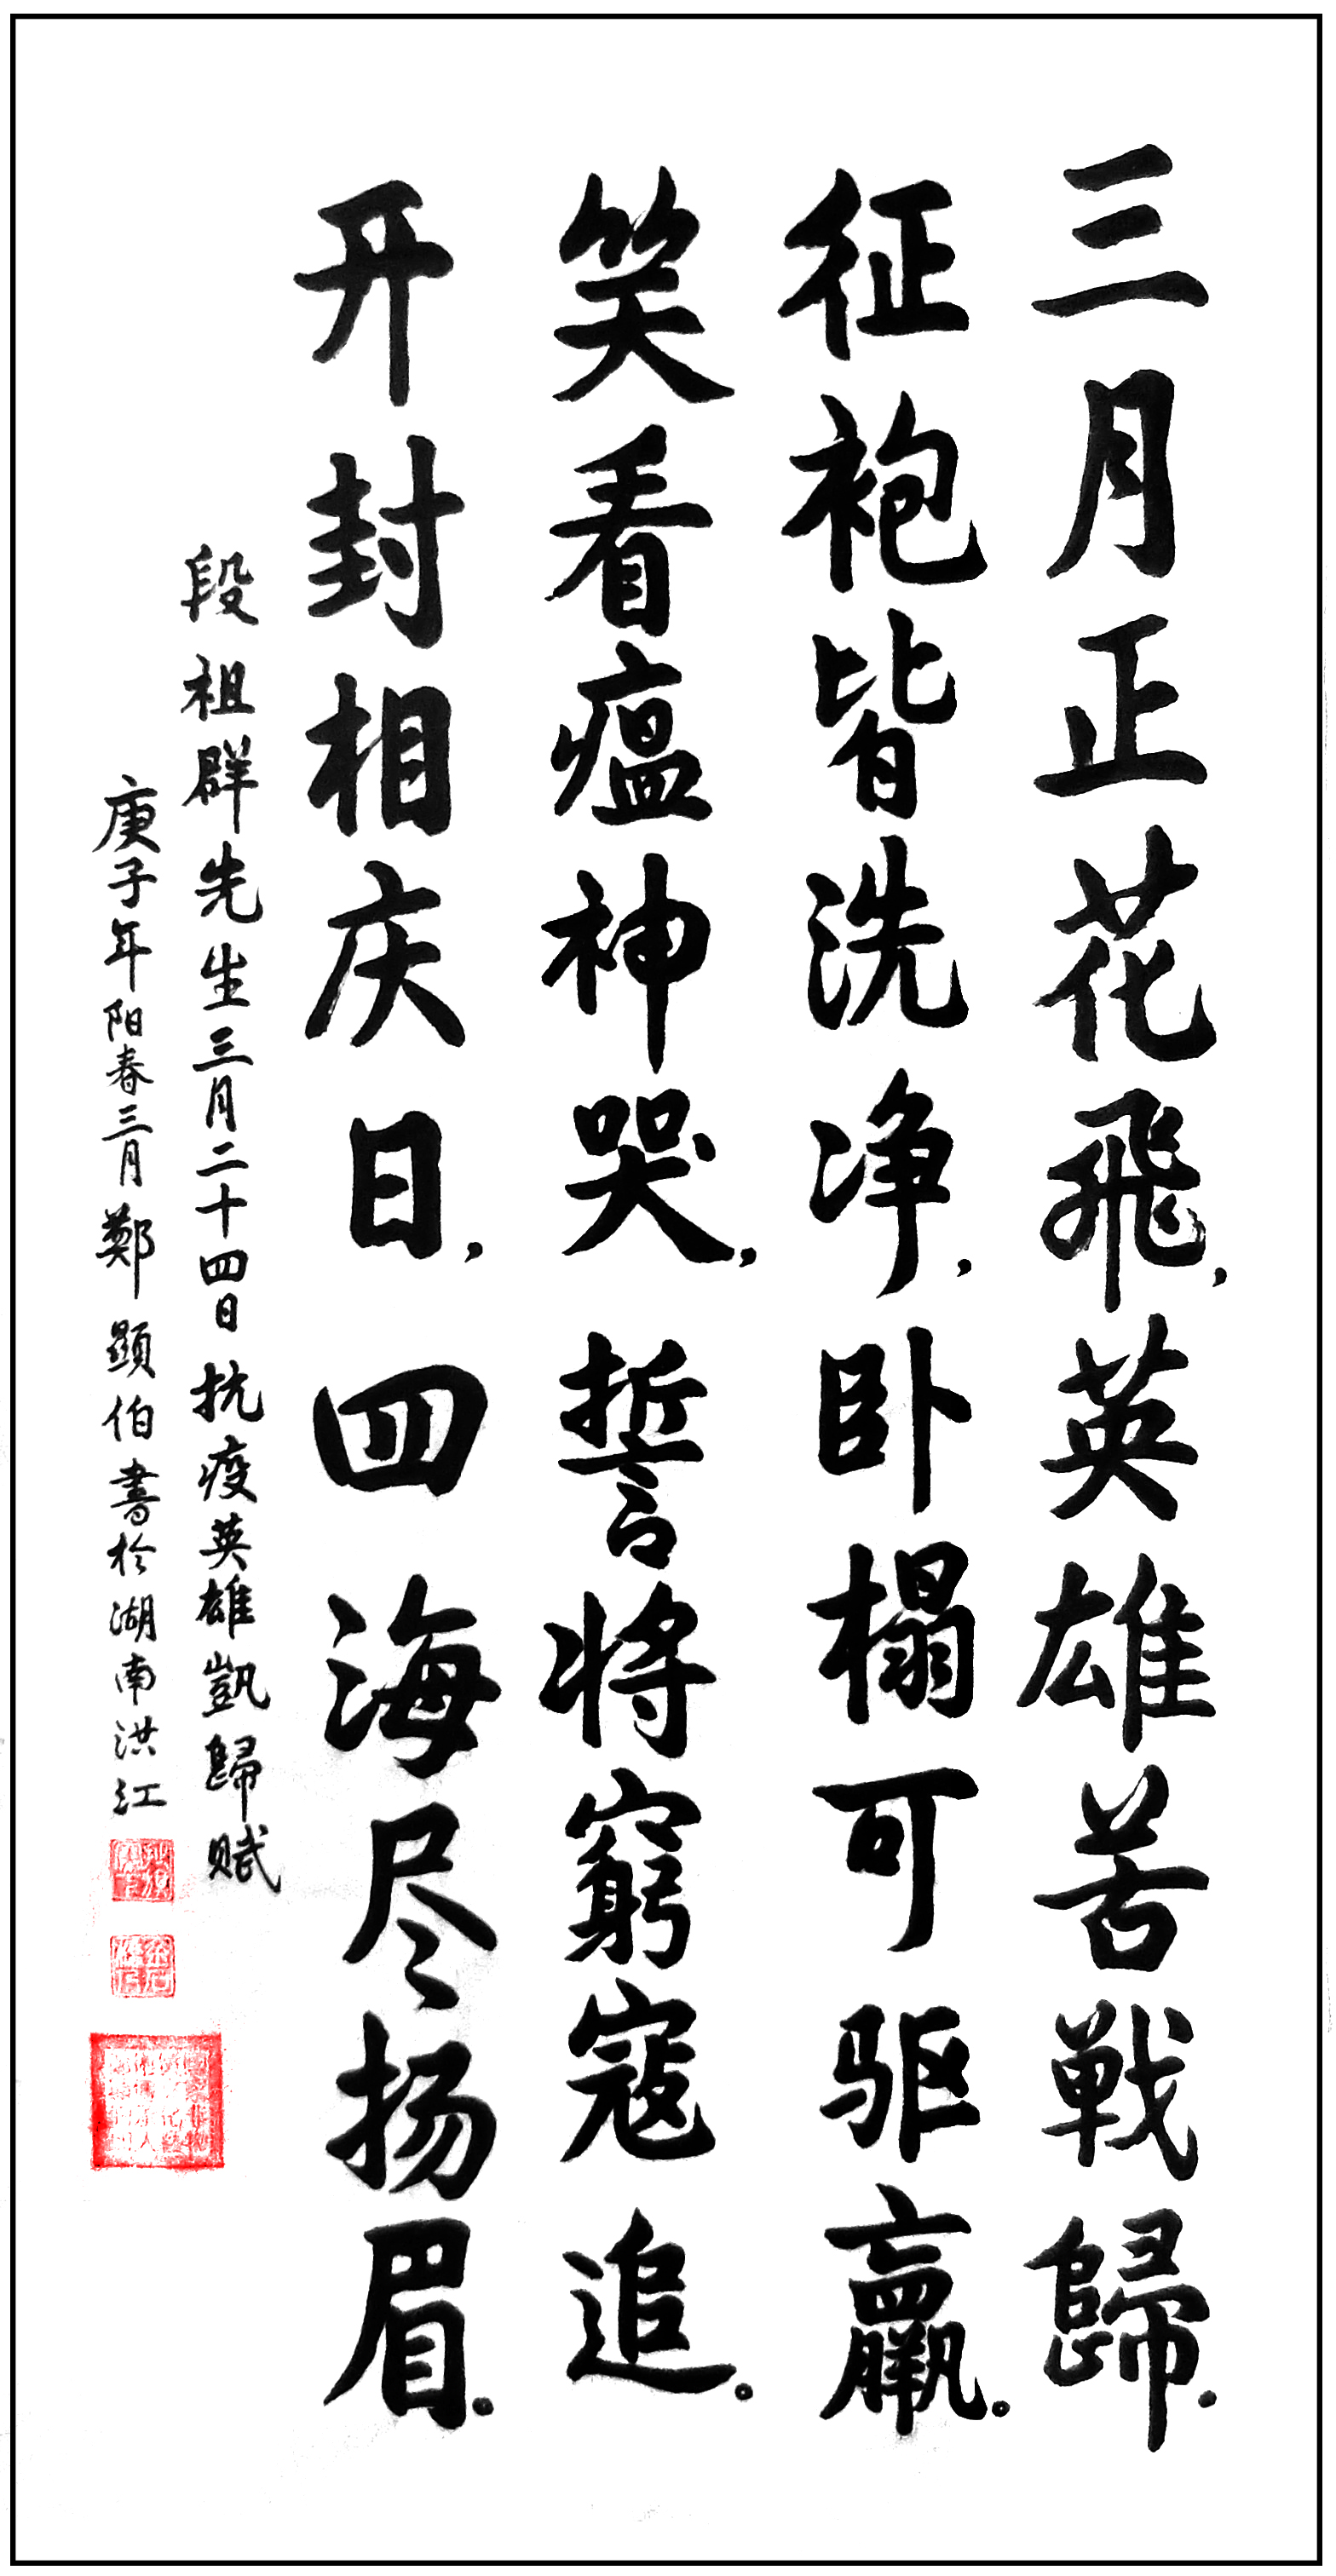 三月正花飛，英雄苦戦歸。
征袍皆洗净，卧榻可驱羸。
笑看瘟神哭，誓将窮寇追。
开封相庆日，四海尽扬眉。
段祖群先生三月二十四日抗疫英雄凱歸赋
庚子年阳春三月鄭顯伯書於湖南洪江